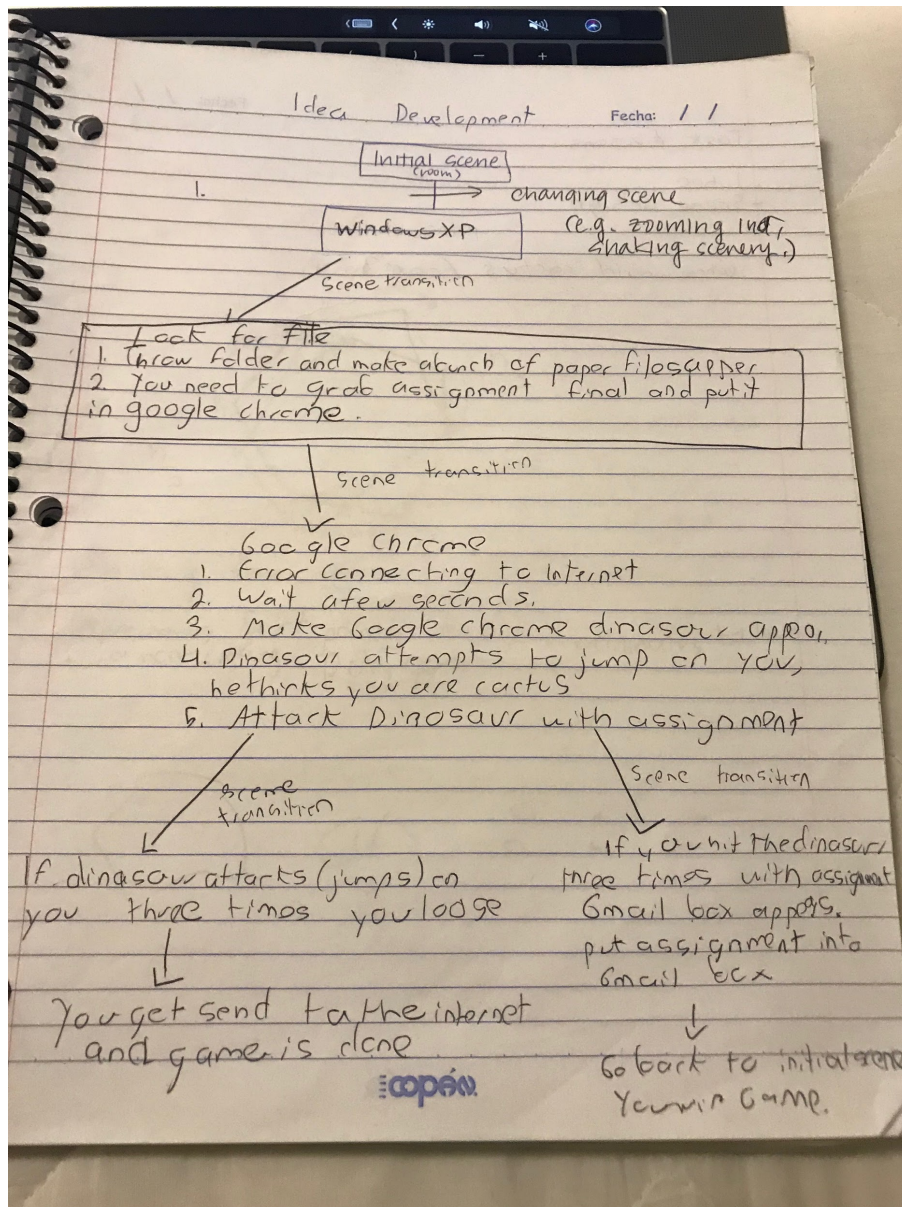 Idea Development Fecha: / /
Initial scene
(room)
1.
changing scene
(e.g. zooming ind,
shaking scenery.)
Windows XP
Scene transition
Look for File
1. Throw folder and make a bunch of paper files apper
2 You need to grab assignment final and put it
in google chrome.
Scene transition
Google Chrome
1. Error connecting to Internet
2. Wait a few seconds.
3. Make Google chrome dinasour appear
4. Dinasour attempts to jump on you,
he thinks you are cactus
5. Attack Dinosaur with assignment
scene
transition
Scene transition
If dinasour attacks (jumps) on
you three times you loose
You get send to the internet
and game is done
If you hit the dinasour
three times with assignment
Gmail box appers.
put assignment into
Gmail box
Go back to initial scene
You win Game.
copán